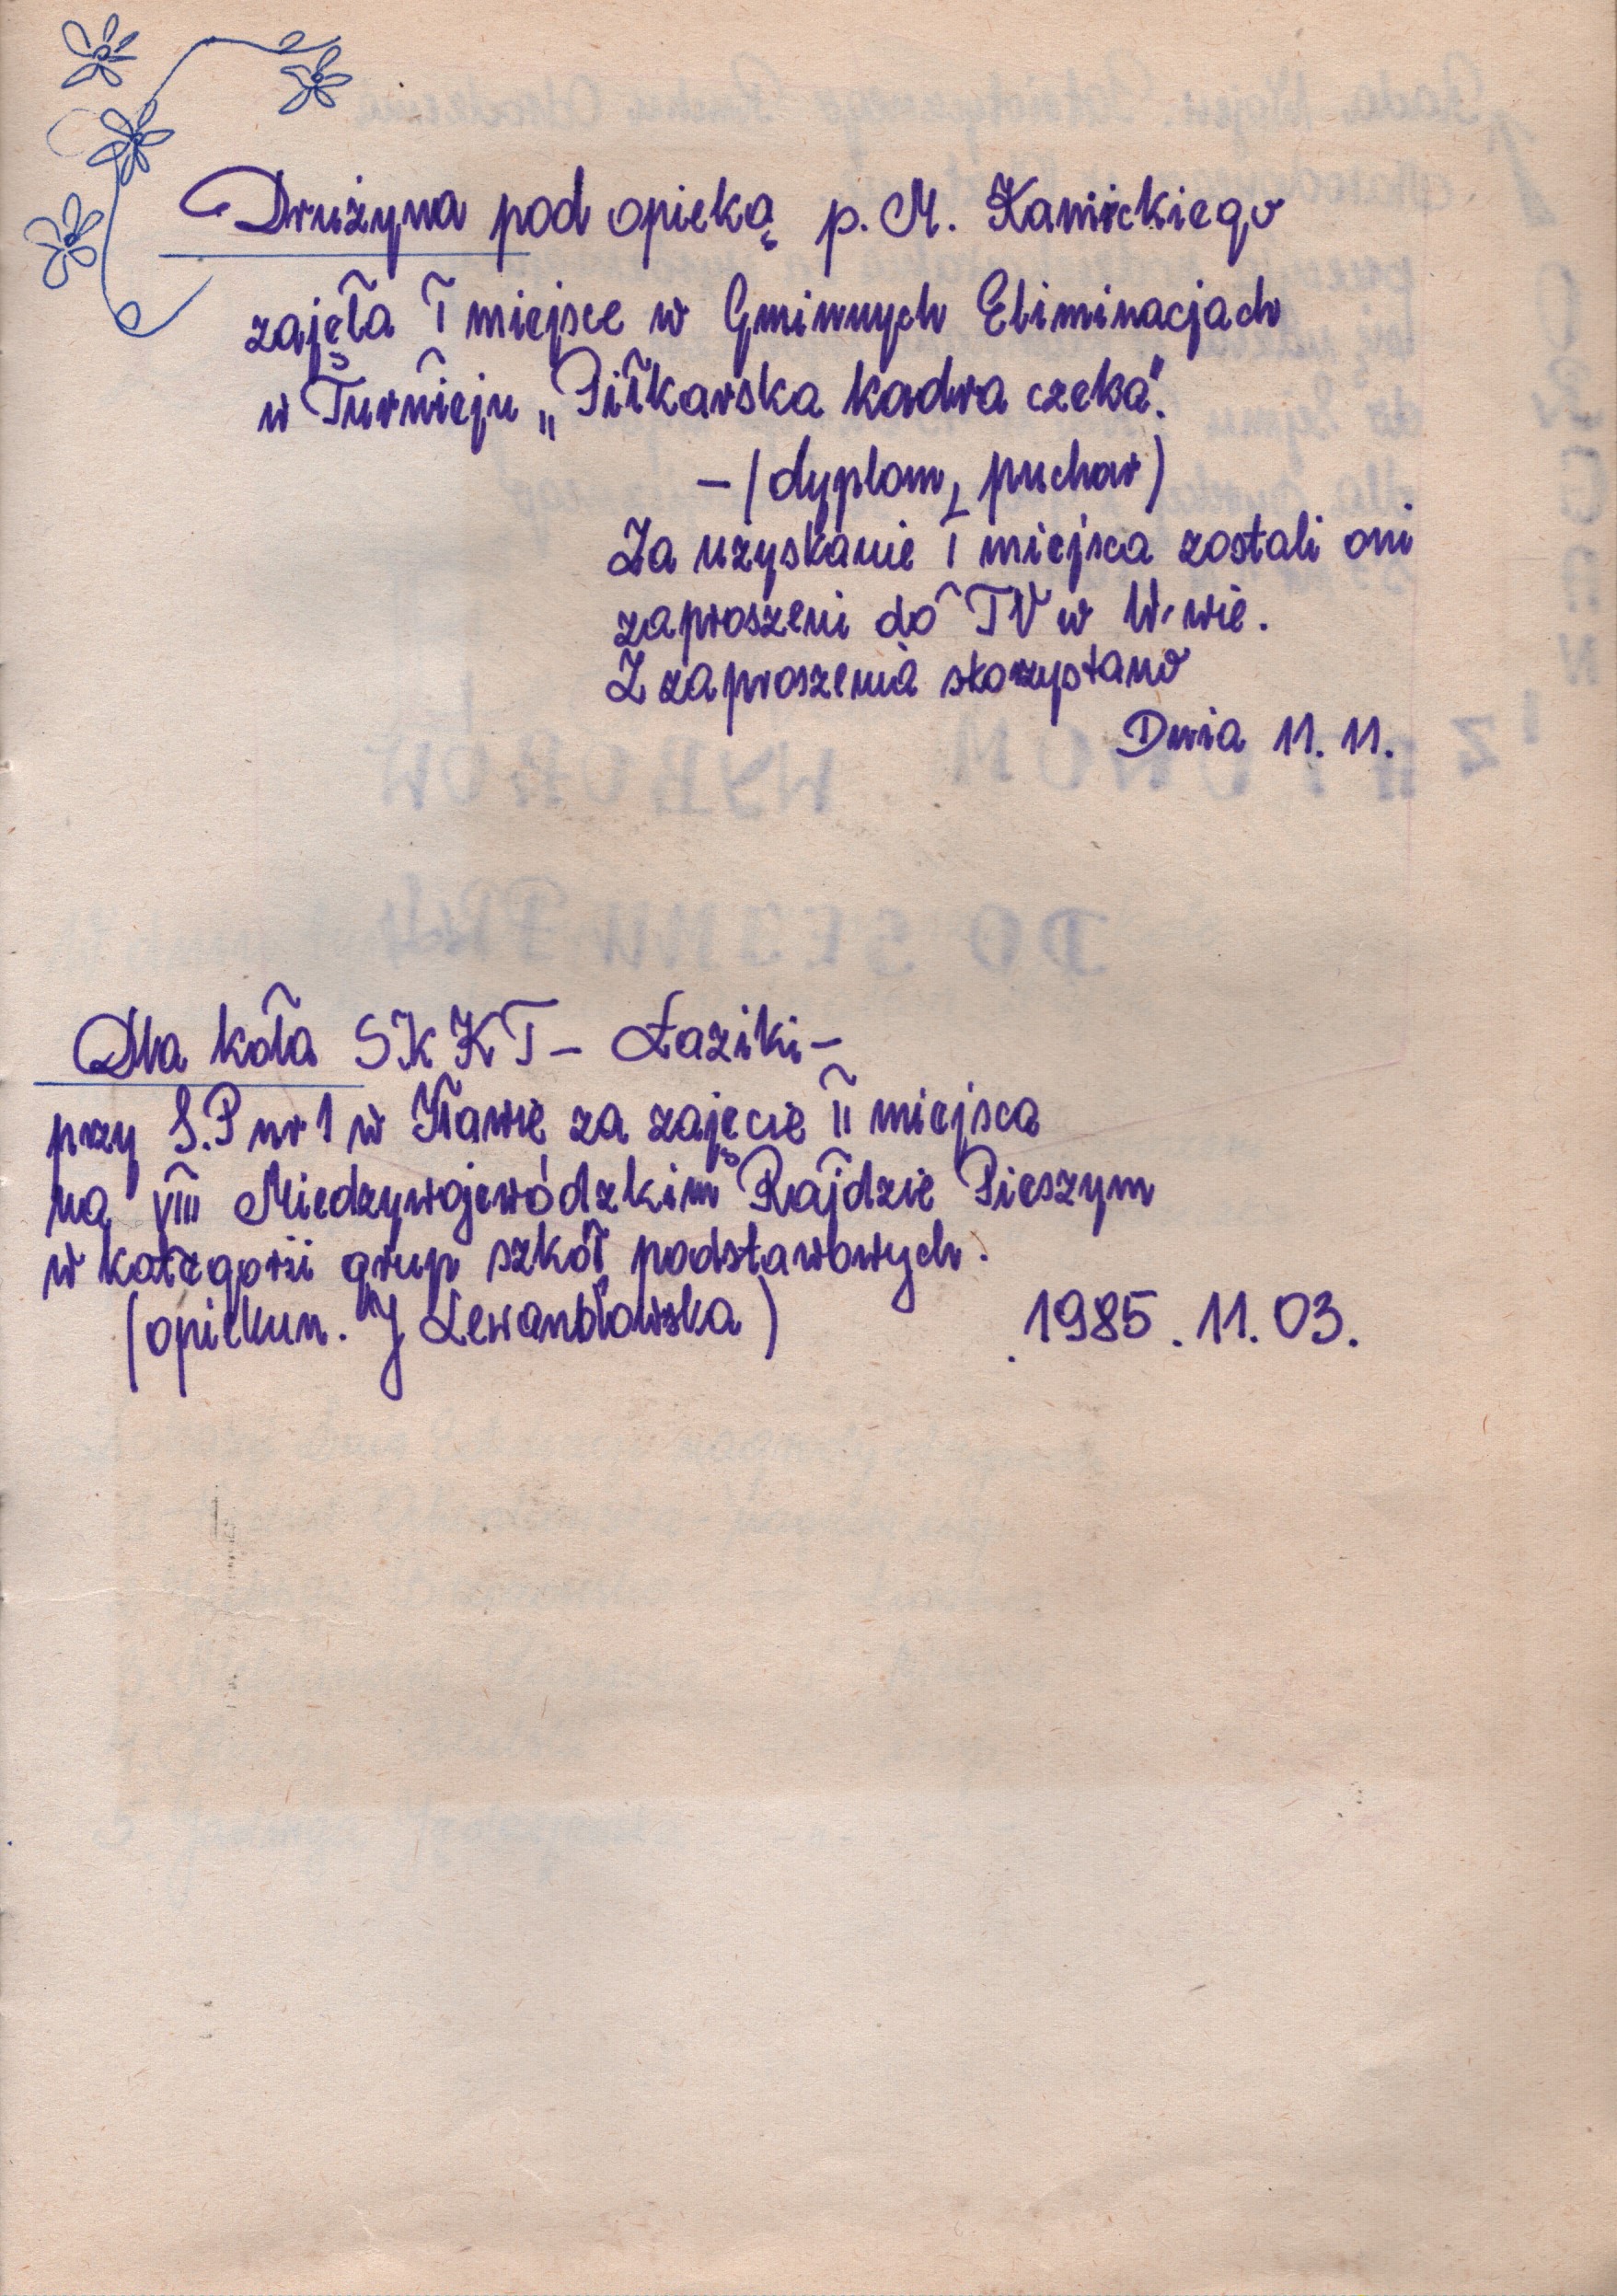 Drużyna pod opieką p. M. Kamickiego
zajęła I miejsce w Gminnych Eliminacjach
w Turnieju „Piłkarska kadra czeka".
– (dyplom, puchar)
Za uzyskanie I miejsca zostali oni
zaproszeni do TV w W-wie.
Z zaproszenia skorzystano
Dnia 11. 11.
Dla koła SKKT – Łaziki –
przy S.P nr 1 w Iławie za zajęcie II miejsca
na VIII Miedzywojewódzkim Rajdzie Pieszym
w kategorii grup szkół podstawowych.
(opiekun. J Lewandowska)
1985. 11. 03.